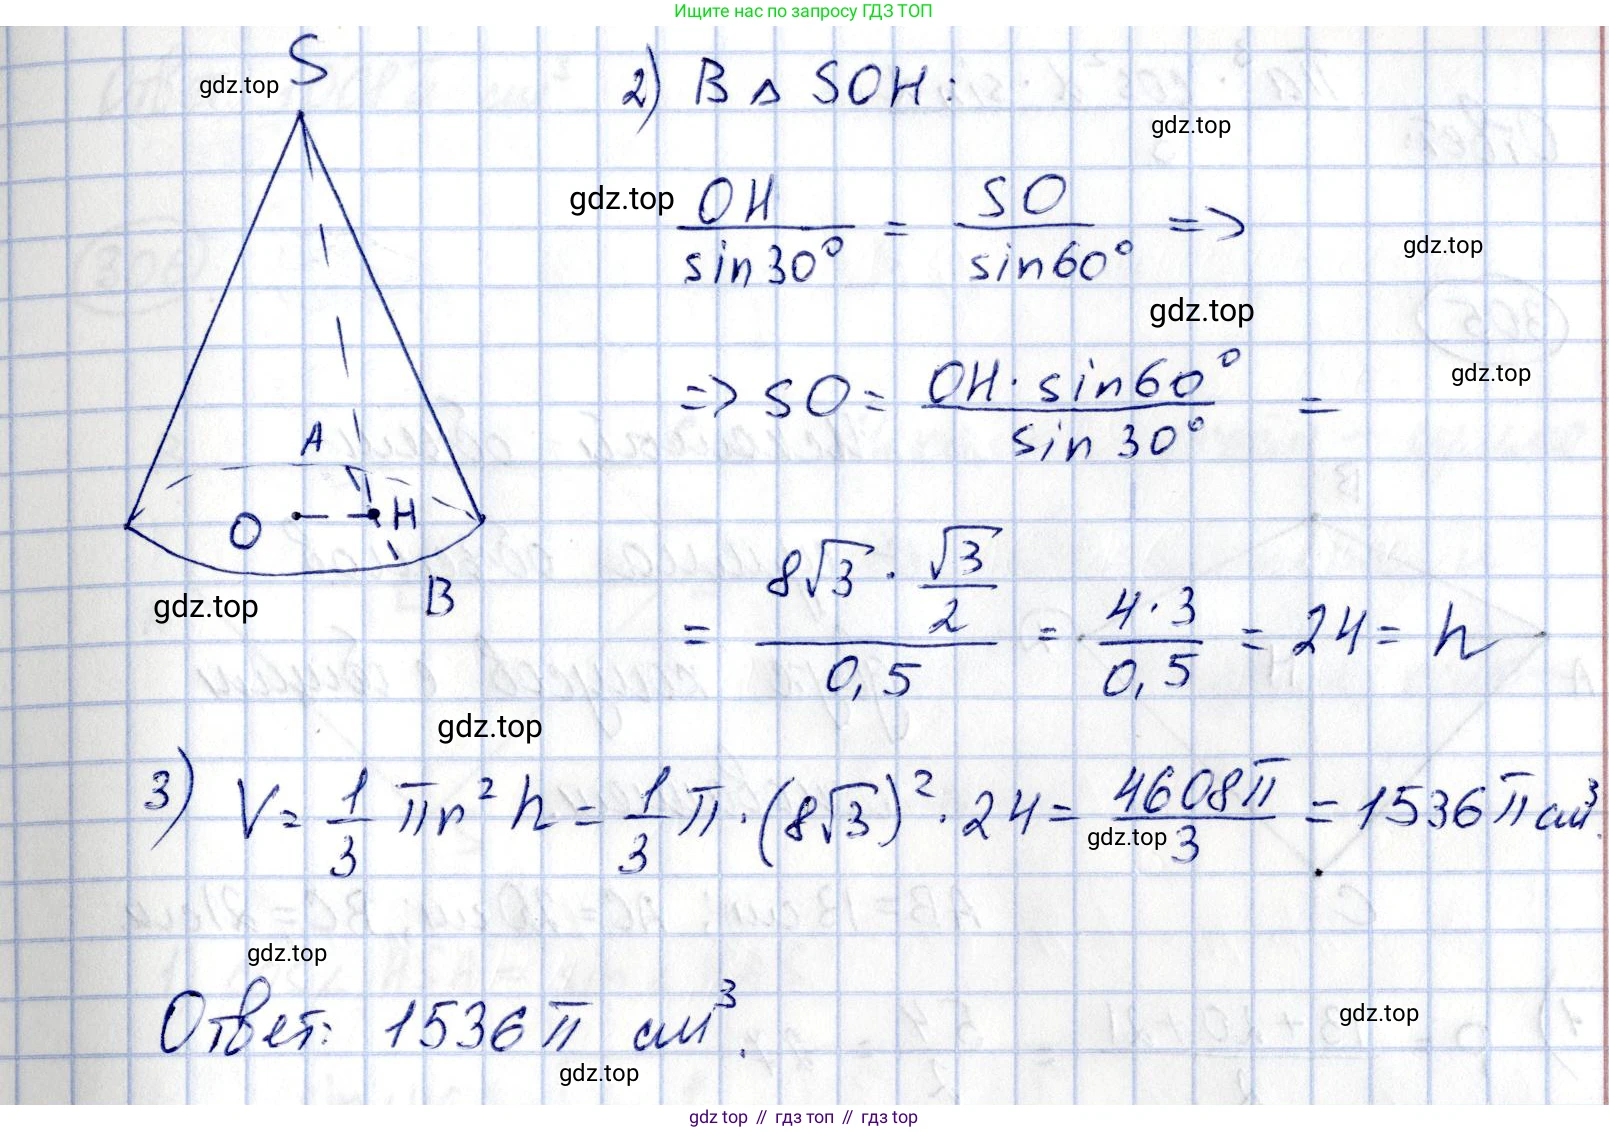 Ищите нас по запросу ГДЗ ТОП
S
gdz.top
2) В △ SOH:
gdz.top
gdz.top
OH/sin30° = SO/sin60° =>
gdz.top
gdz.top
=> SO = OH · sin60°/sin30° =
gdz.top
A
O
H
B
gdz.top
= 8√3 · √3/2 / 0,5 = 4·3/0,5 = 24 = h
gdz.top
3) V = 1/3 πr² h = 1/3 π · (8√3)² · 24 = 4608π/3 = 1536π см³.
gdz.top
gdz.top
Ответ: 1536π см³.
gdz.top
gdz.top
gdz.top // гдз топ // гдз top